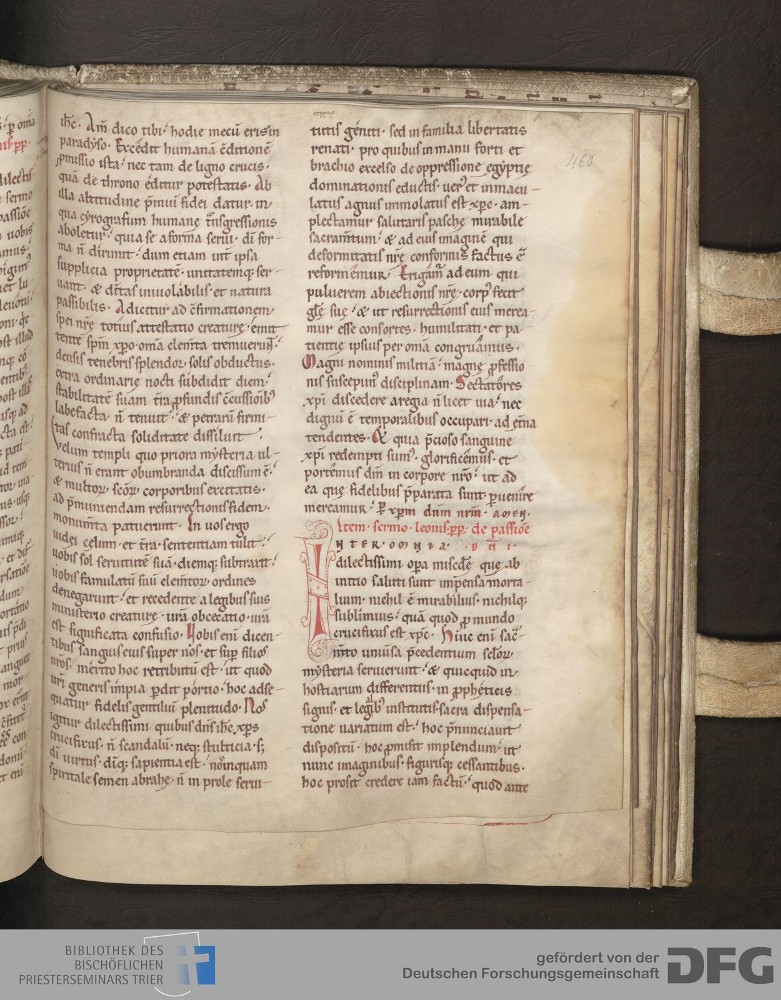 ihc. Am̅ dico tibi. hodie mecū eris in
paradyso. Excedit humanā c̄ditionē
ꝓmissio ista. nec tam de ligno crucis.
quā de throno editur potestatis. Ab
illa altitudine p̄miū fidei datur. in
qua cyrografum humane tn̄sgressionis
aboletur. quia se a forma serui. di for-
ma n̄ dirimit. dum etiam int̄ ipsa
supplicia proprietatē. unitatemq; ser-
uant. & diuitas inuiolabilis. et natura
passibilis. Adicitur ad c̄firmationem
spei nr̄e totius attestatio creature. emit
tente sp̄m xp̄o. om̄a elem̄ta tremuerunt.
densis tenebris splendor solis obductus.
extra ordinarie nocti subdidit diem.
stabilitatē suam t̄ra ꝓfundis c̄cussionib;
labefacta n̄ tenuit. & petrarū firmi-
tas confracta soliditate dissiluit.
Velum templi quo priora mysteria ul-
terius n̄ erant obumbranda discissum ē.
& multor scōr corporibus excitatis.
ad p̄muniendam resurrectionis fidem.
monum̄ta patuerunt. In uos ergo
iudei celum. et t̄ra. sententiam tulit.
uobis sol seruitutē suā. diemq; subtraxit.
uobis famulatū suū elem̄tor ordines
denegarunt. et recedente a legibus suis
ministerio creature. ur̄a obcecatio. ur̄a
est significata confusio. Vobis eni dicen-
tibus sanguis eius super nos. et sup filios
nr̄os. merito hoc retributū est. ut quod
ur̄i generis impia ꝑdit portio. hoc adse-
quatur fidelis gentiliū plenitudo. Nos
igitur dilectissimi quibus dn̄s ihc xp̄s
crucifixus. n̄ scandalū. neq; stulticia. s;
di uirtus. diq; sapientia est. nos inquam
spiritale semen abrahe. n̄ in prole serui-
tutis geniti. sed in familia libertatis
renati. pro quibus in manu forti et
brachio excelso de oppressione egyptie
dominationis eductis. uer' et inmacu-
latus agnus immolatus est xp̄c. am-
plectamur salutaris pasche mirabile
sacram̄tum. & ad eius imaginē qui
deformitatis nr̄e conformis factus ē
reformemur. Erigam̄ ad eum. qui
puluerem abiectionis nr̄e. corp' fecit
gl̄e sue. & ut resurrectionis eius merea-
mur esse consortes. humilitati. et pa
tientie ipsius per om̄a congruamus.
Magni nominis militiā. magne ꝓfessio
nis suscepim' disciplinam. Sectatores
xp̄i discedere a regia n̄ licet uia. nec
dignū ē temporalibus occupari. ad et̄na
tendentes. Et quia p̄cioso sanguine
xp̄i redempti sum'. glorificemus. et
portemus dm̄ in corpore nr̄o. ut ad
ea que fidelibus p̄parata sunt. ꝑuenire
mereamur. ꝑ xp̄m dn̄m nr̄m. AMEN.
Item. sermo. leonis. pp. de passiōe
INTER. OMNIA. DNI.
dilectissimi opa misc̄de que ab
initio saluti sunt inpensa morta
lium. nichil ē mirabilius. nichilq;
sublimius. quā quod ꝓ mundo
crucifixus est xp̄c. Huic eni sac̄-
m̄to uniūsa p̄cedentium sclōr
mysteria seruierunt. & quicquid in
hostiarum differentiis. in ꝓpheticis
signis. et legalib; institutis. sacra dispensa-
tione uariatum est. hoc p̄nunciauit
dispositū. hoc ꝓmisit implendum. ut
nunc imaginibus. figurisq; cessantibus.
hoc prosit credere iam factū. quod ante
460
BIBLIOTHEK DES
BISCHÖFLICHEN
PRIESTERSEMINARS TRIER
gefördert von der
Deutschen Forschungsgemeinschaft
DFG